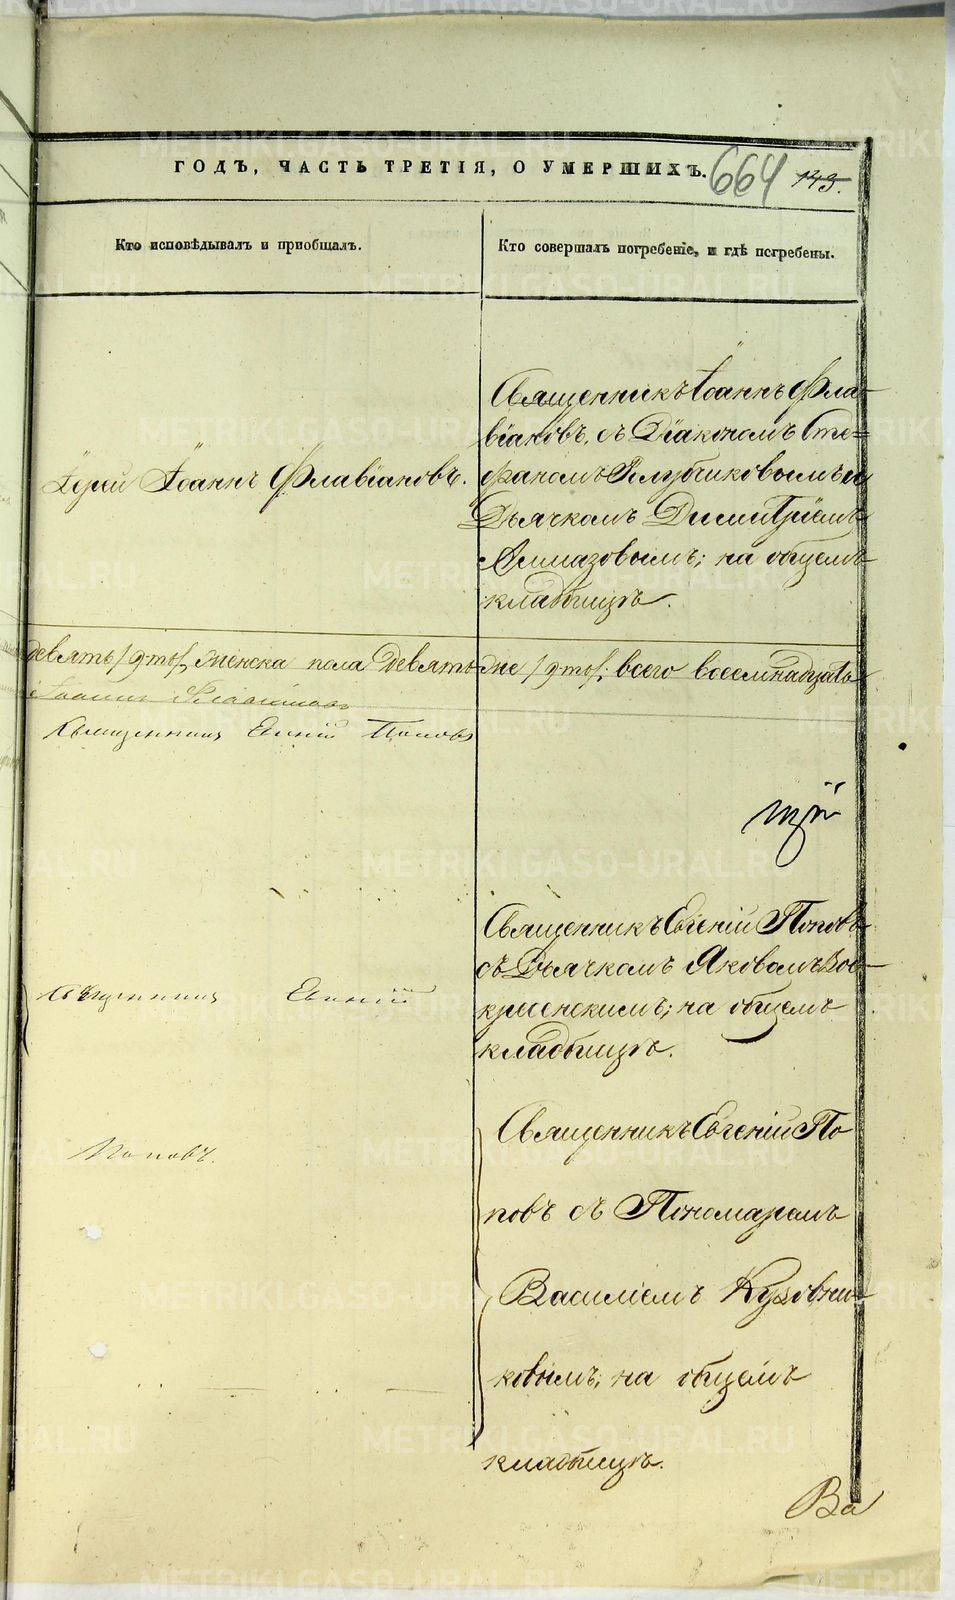 ГОДЪ, ЧАСТЬ ТРЕТІЯ, О УМЕРШИХЪ. 664 143.
Кто исповѣдывалъ и пріобщалъ.
Кто совершалъ погребеніе, и гдѣ погребены.
Іерей Іоаннъ Флавіановъ.
Священникъ Іоаннъ Фла-
віановъ, съ Діакономъ Сте-
фаномъ Голубчиковымъ и
Дьячкомъ Димитріемъ
Алмазовымъ; на общемъ
кладбищѣ.
девять /9ть/, женска пола девять же /9ть/; всего восемнадцать
Іоаннъ Флавіановъ
Священникъ Евгній Поповъ
Священникъ Евгеній Поповъ
съ Дьячкомъ Яковомъ Вос-
кресенскимъ; на общемъ
кладбищѣ.
Священникъ Евгній
Поповъ.
Священникъ Евгеній По
повъ съ Пономаремъ
Василіемъ Кузовни-
ковымъ; на общемъ
кладбищѣ.
Ва
METRIKI.GASO-URAL.RU